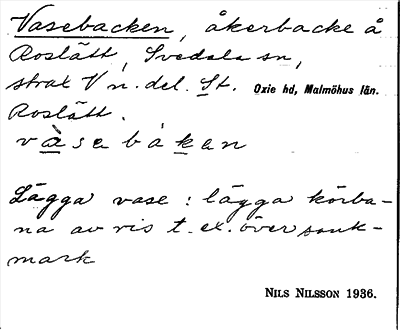 Vasebacken, åkerbacke å
Roslätt, Svedala sn,
strax V n. del. St. Oxie hd, Malmöhus län.
Roslätt.
vàsebàken
Lägga vase: lägga körba-
na av ris t. ex. över sank-
mark
NILS NILSSON 1936.